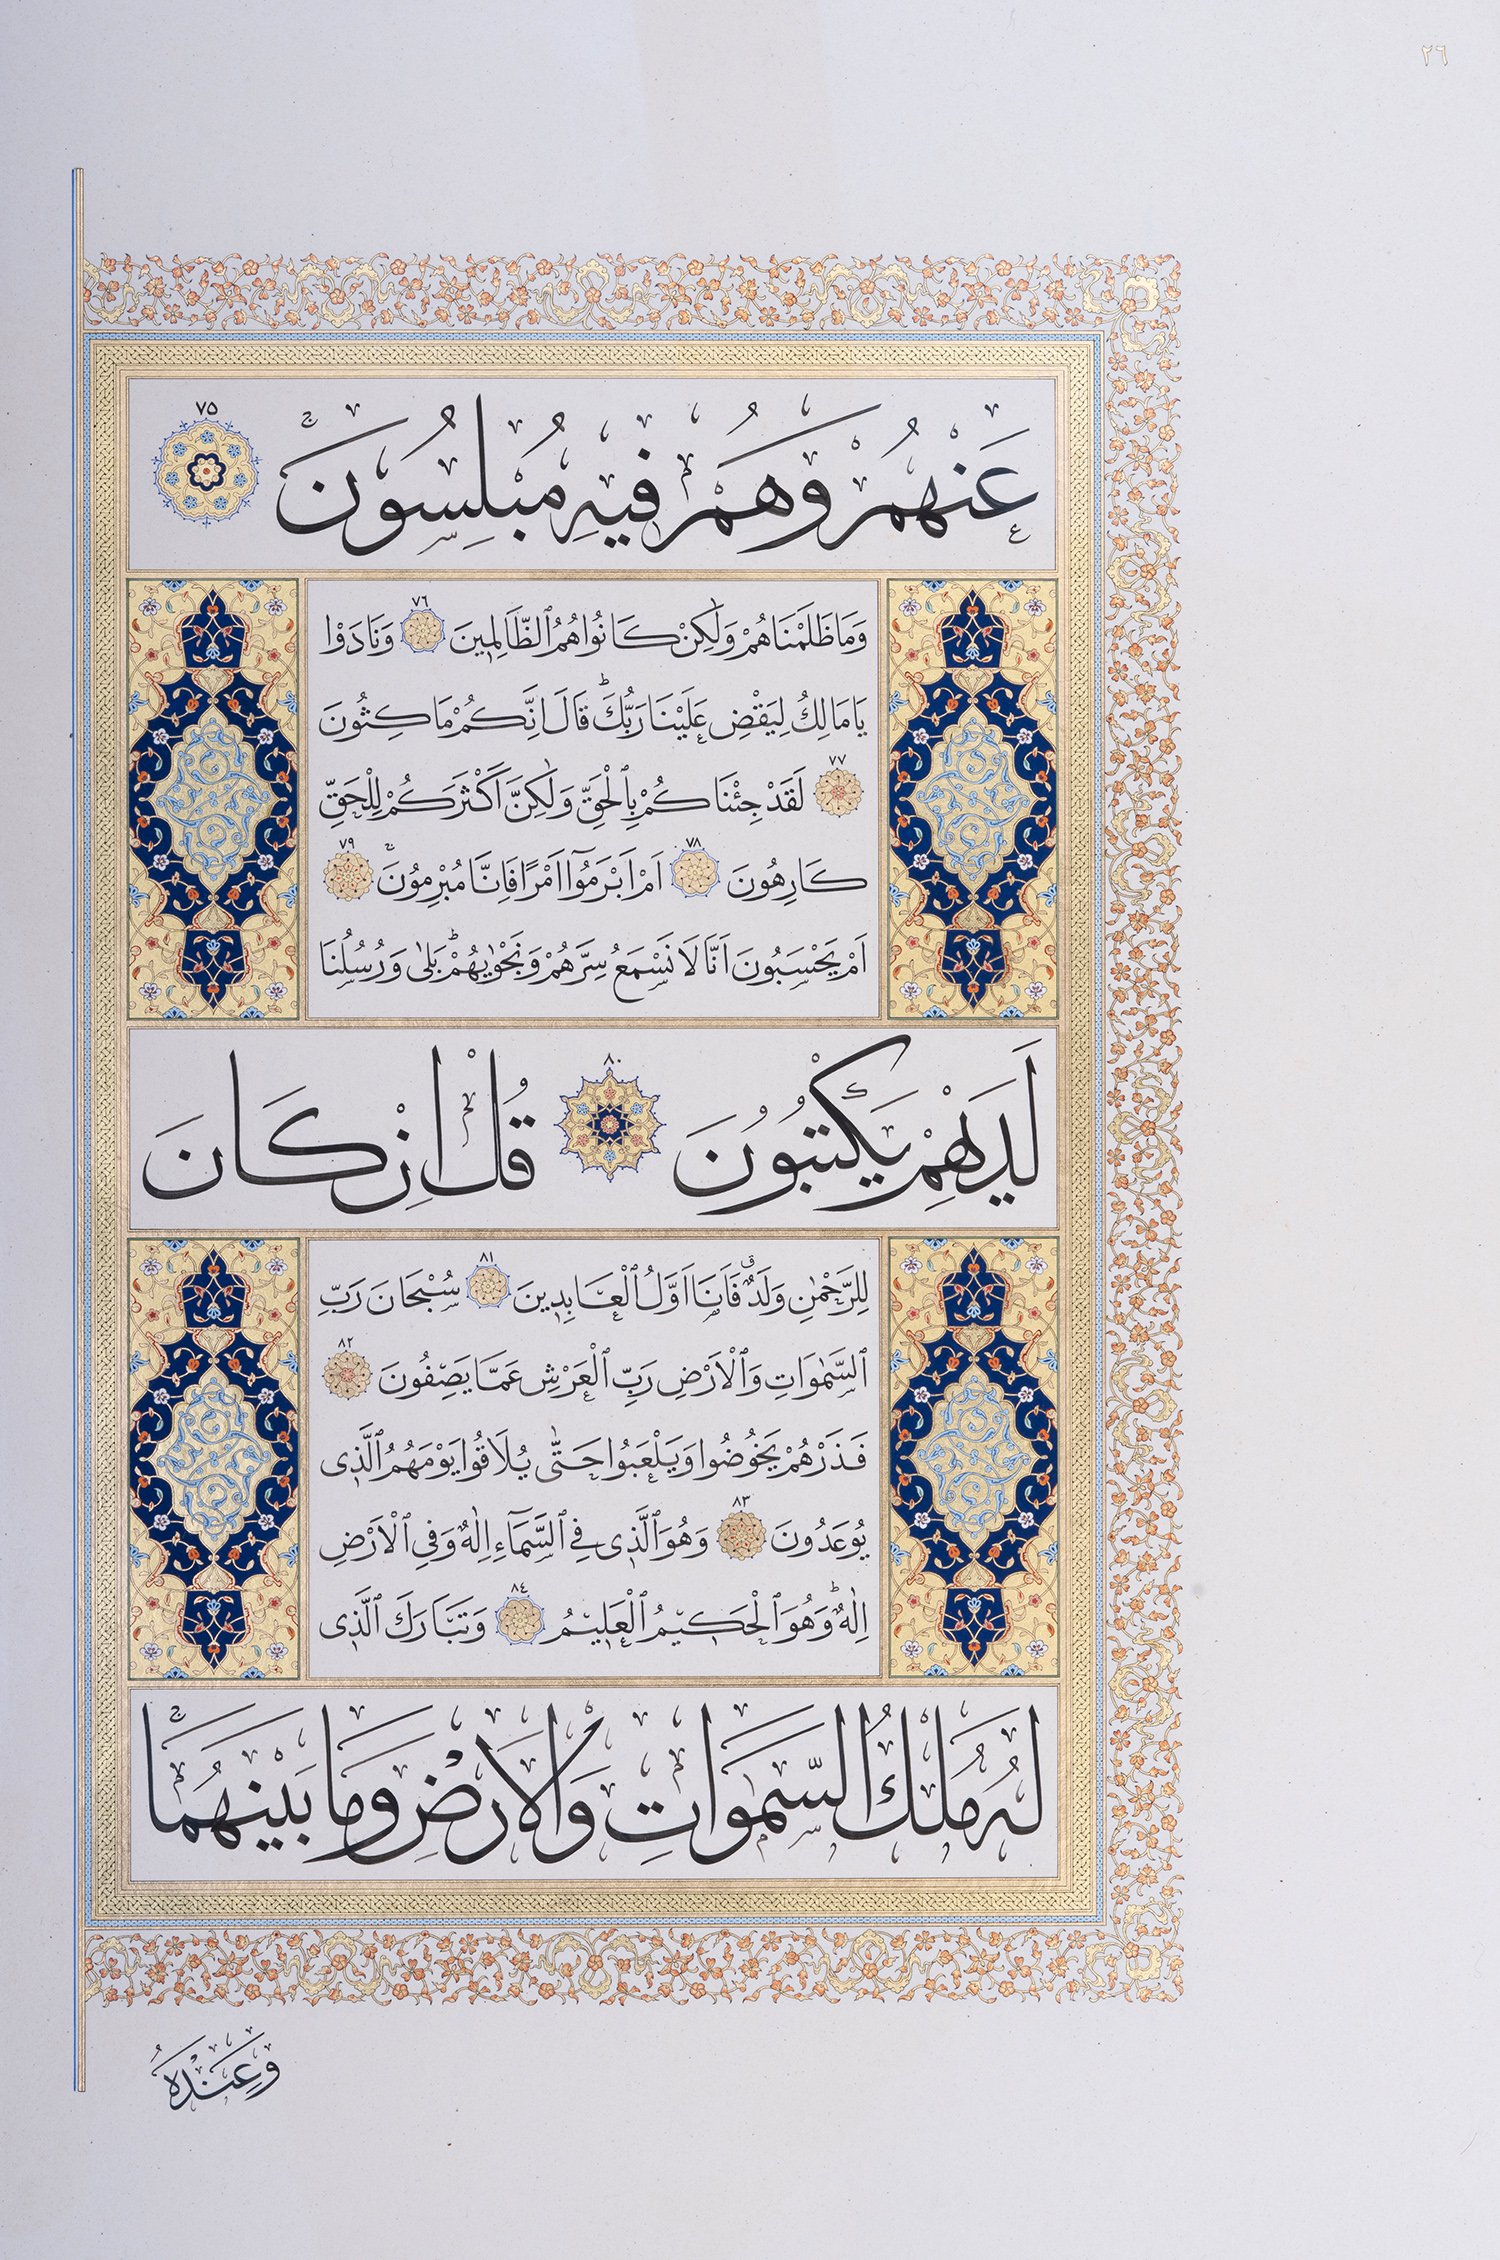 ٢٦
عَنْهُمْ وَهُمْ فِيهِ مُبْلِسُونَۚ ٧٥
وَمَا ظَلَمْنَاهُمْ وَلٰكِنْ كَانُوا هُمُ ٱلظَّالِمِينَ ٧٦ وَنَادَوْا
يَا مَالِكُ لِيَقْضِ عَلَيْنَا رَبُّكَۜ قَالَ اِنَّكُمْ مَاكِثُونَ
٧٧ لَقَدْ جِئْنَاكُمْ بِٱلْحَقِّ وَلٰكِنَّ اَكْثَرَكُمْ لِلْحَقِّ
كَارِهُونَ ٧٨ اَمْ اَبْرَمُٓوا اَمْرًا فَاِنَّا مُبْرِمُونَۚ ٧٩
اَمْ يَحْسَبُونَ اَنَّا لَا نَسْمَعُ سِرَّهُمْ وَنَجْوٰيهُمْۜ بَلٰى وَرُسُلُنَا
لَدَيْهِمْ يَكْتُبُونَ ٨٠ قُلْ اِنْ كَانَ
لِلرَّحْمٰنِ وَلَدٌۗ فَاَنَا اَوَّلُ ٱلْعَابِدِينَ ٨١ سُبْحَانَ رَبِّ
ٱلسَّمٰوَاتِ وَٱلْاَرْضِ رَبِّ ٱلْعَرْشِ عَمَّا يَصِفُونَ ٨٢
فَذَرْهُمْ يَخُوضُوا وَيَلْعَبُوا حَتّٰى يُلَاقُوا يَوْمَهُمُ ٱلَّذِى
يُوعَدُونَ ٨٣ وَهُوَ ٱلَّذِى فِى ٱلسَّمَٓاءِ اِلٰهٌ وَفِى ٱلْاَرْضِ
اِلٰهٌۜ وَهُوَ ٱلْحَكِيمُ ٱلْعَلِيمُ ٨٤ وَتَبَارَكَ ٱلَّذِى
لَهُ مُلْكُ السَّمٰوَاتِ وَالْاَرْضِ وَمَا بَيْنَهُمَاۚ
وَعِنْدَهُ